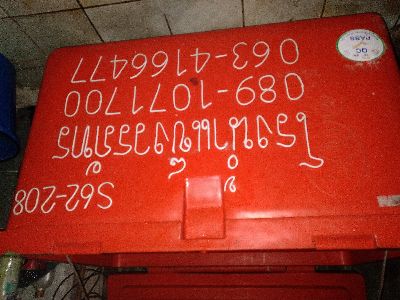 S62-208
โรงน้ำแข็งวรภัทร
089-1071700
063-4166477
QC
PASS